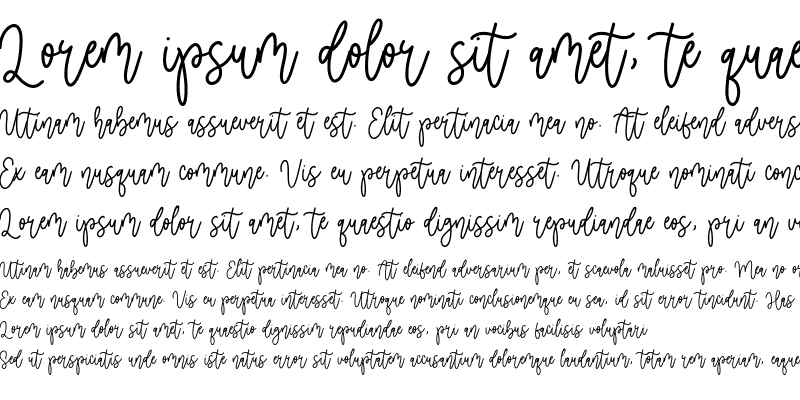 Lorem ipsum dolor sit amet, te quae
Utinam habemus assueverit et est. Elit pertinacia mea no. At eleifend advers
Ex eam nusquam commune. Vis eu perpetua interesset. Utroque nominati conc
Lorem ipsum dolor sit amet, te quaestio dignissim repudiandae eos, pri an v
Utinam habemus assueverit et est. Elit pertinacia mea no. At eleifend adversarium per, et scaevola maluisset pro. Mea no or
Ex eam nusquam commune. Vis eu perpetua interesset. Utroque nominati conclusionemque eu sea, id sit error tincidunt. Has
Lorem ipsum dolor sit amet, te quaestio dignissim repudiandae eos, pri an vocibus facilisis voluptari
Sed ut perspiciatis unde omnis iste natus error sit voluptatem accusantium doloremque laudantium, totam rem aperiam, eaque